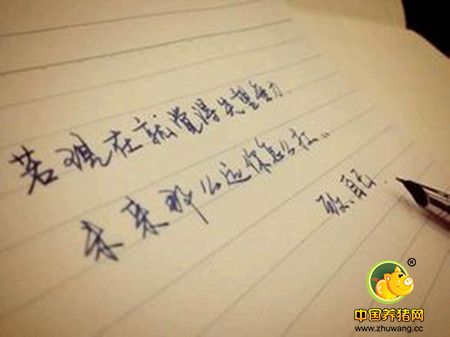 若现在就觉得失望无力
未来那么远你怎么扛。
致自己.
®
中国养猪网
www.zhuwang.cc